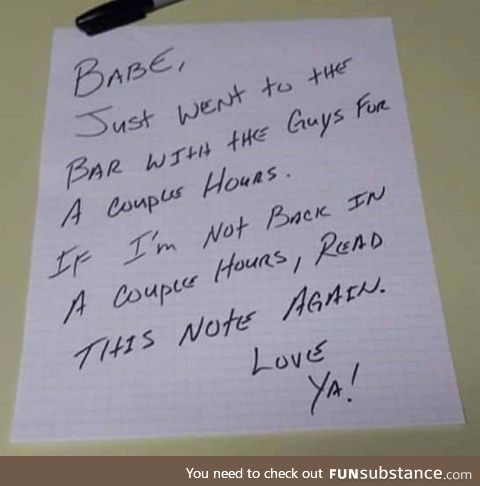 BABE,
Just WENT to tHE
BAR WITH tHE Guys FOR
A Couple Hours.
IF I'm Not Back IN
A Couple Hours, READ
THIS NOtE AGAIN.
Love
YA!
You need to check out FUNsubstance.com